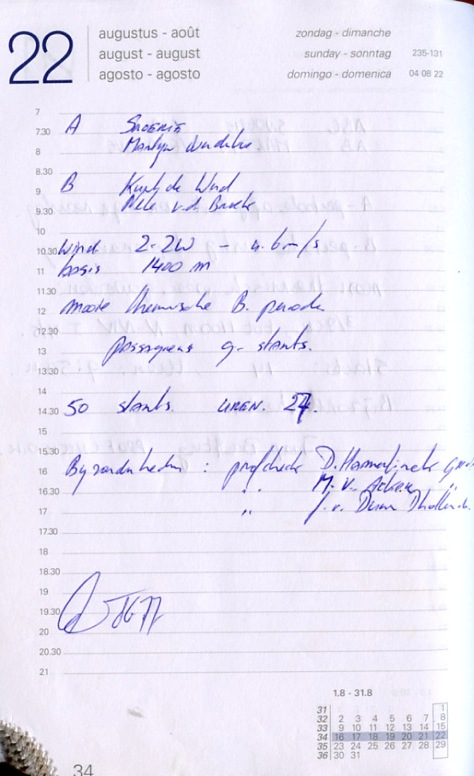 22
augustus - août
august - august
agosto - agosto
zondag - dimanche
sunday - sonntag 235-131
domingo - domenica 04 08 22
7
7.30 A
8
8.30
9 B Kurt de Wud
9.30 v.d. Broeke
10
10.30 Wind 2-2W - 4.6 m/s
11 basis 1400 m
11.30
12 mooie thermische B. periode
12.30
13 passagiers g- starts.
13.30
14
14.30 50 starts. UREN. 27.
15
15.30
16 Byzonderheden : profcheck D.
16.30 " M. V. Acker "
17 " J. v.
17.30
18
18.30
19
19.30
20
20.30
21
1.8 - 31.8
31 1
32 2 3 4 5 6 7 8
33 9 10 11 12 13 14 15
34 16 17 18 19 20 21 22
35 23 24 25 26 27 28 29
36 30 31
34